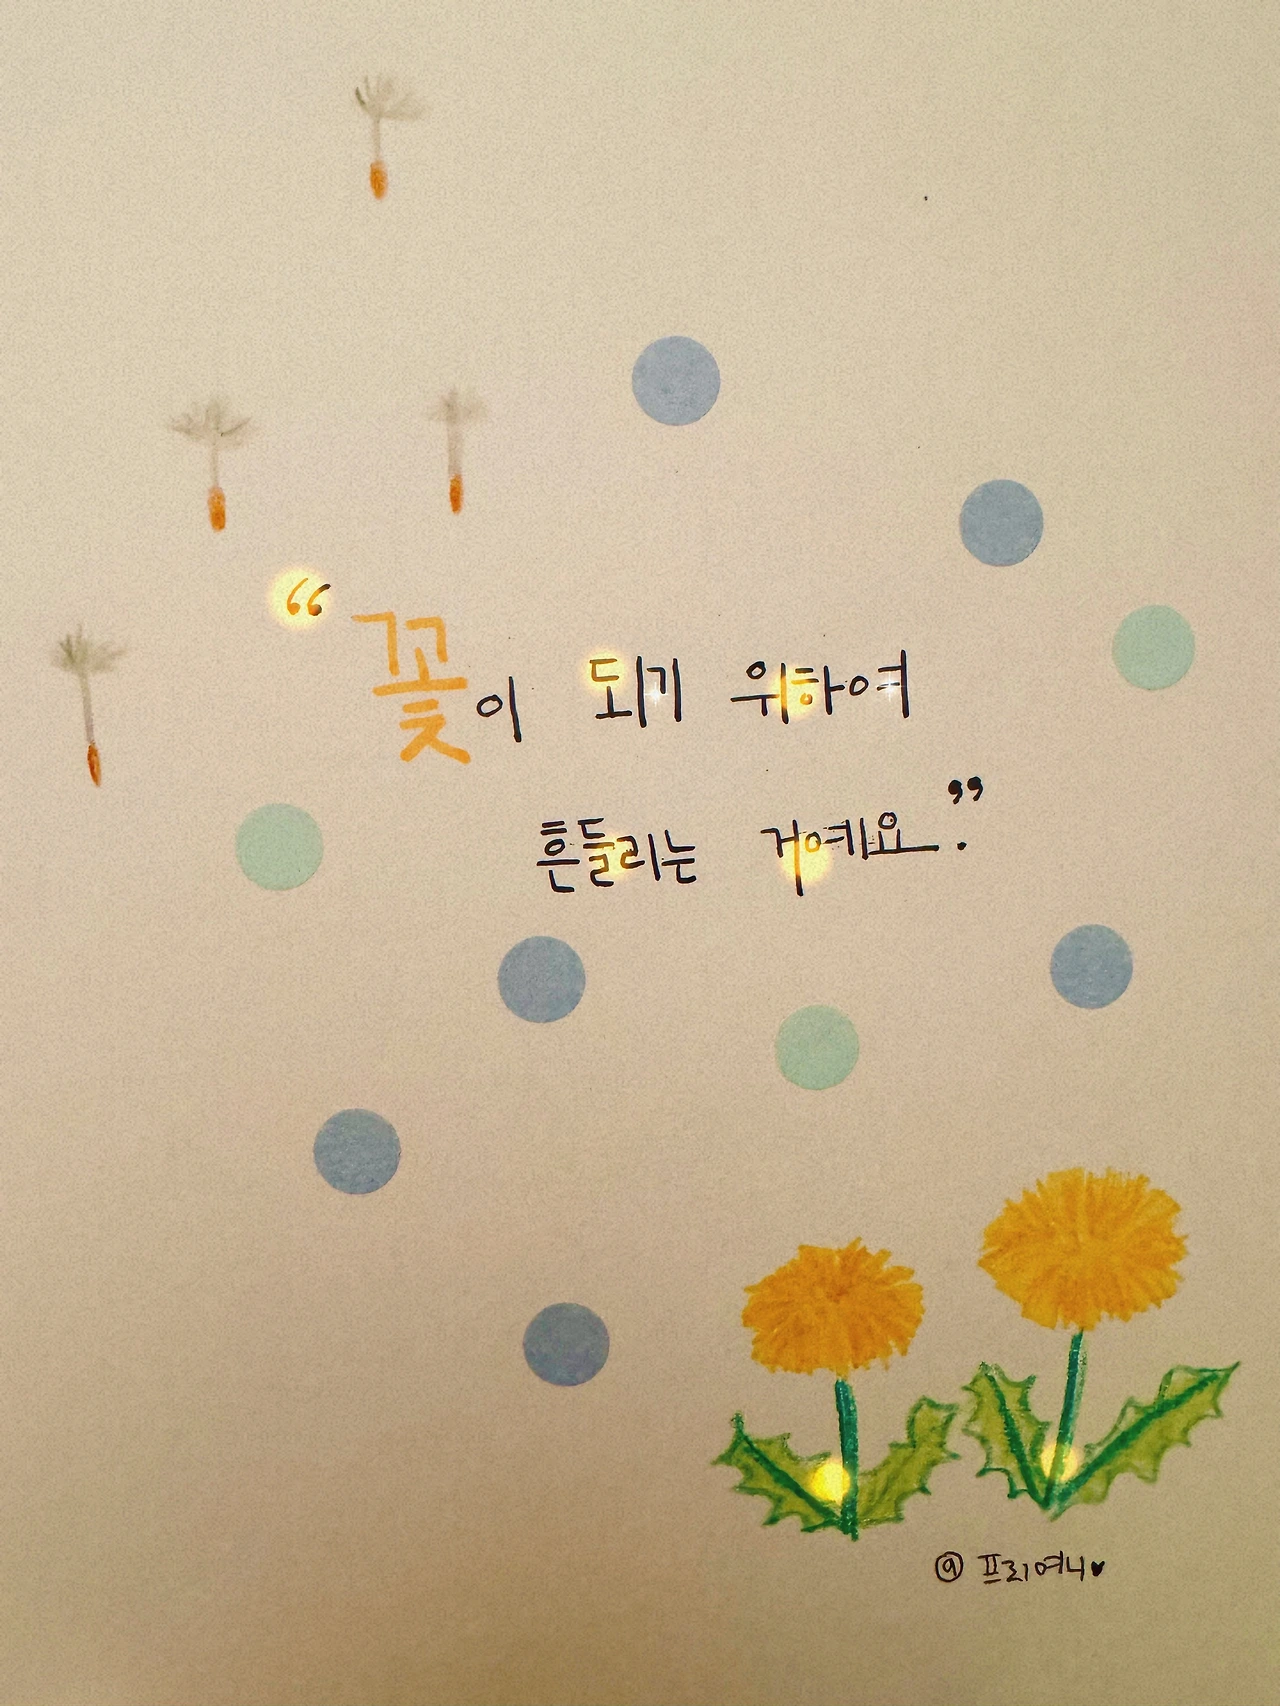 “꽃이 되기 위하여
흔들리는 거예요.”
@프리여니♥